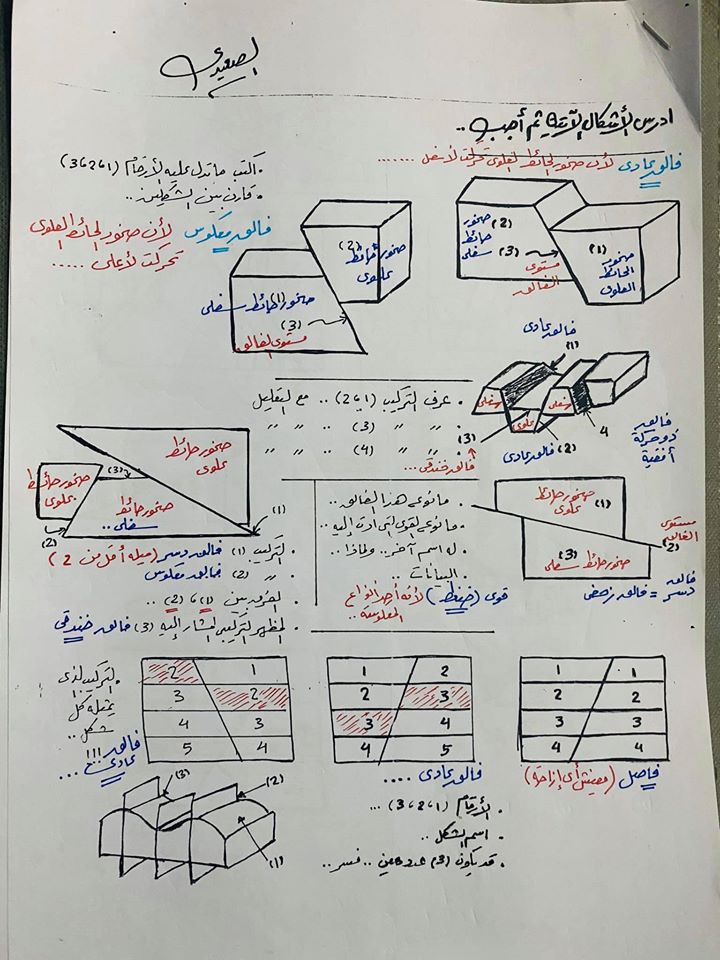 الصعيدى
ادرس الأشكال الآتية ثم أجب ..
فالق عادى لأن صخور الحائط العلوى تحركت لأسفل .......
• اكتب ما تدل عليه الأرقام (1، 2، 3)
• قارن بين الشكلين ..
فالق معكوس لأن صخور الحائط العلوى
تحركت لأعلى .....
صخور حائط سفلى (2)
(3)
مستوى الفالق
(1)
صخور الحائط العلوى
(2)
صخور حائط علوى
صخور (1) حائط سفلى
(3)
مستوى الفالق
فالق عادى
(1)
سفلى
علوى
سفلى
4
(3)
فالق عادى (2)
فالق ذو حركة أفقية
• عرف التركيب (1 و 2) .. مع التعليل
• " " (3) " " "
• " " (4) " " "
فالق خندقى ...
صخور حائط علوى
صخور حائط علوى
(3)
صخور حائط سفلى ..
(1)
(2)
• التركيب (1) فالق دسر (ميله أقل من 2)
• " (2) فالق معكوس
• الفرق بين (1)، (2) ..
• المظهر التركيبى المشار إليه (3) فالق خندقى
• ما نوع هذا الفالق ..
• ما نوع القوى التى أدت إليه ..
• له اسم آخر .. ولماذا ..
• البيانات ..
قوى (ضغط) لأنه أحد أنواع
المعكوسة ..
صخور حائط علوى (1)
مستوى الفالق
(2)
(3)
صخور حائط سفلى
فالق دسر = فالق زحفى
• التركيب الذى
يمثله كل
شكل ..
2 1
3 2
4 3
5 4
فالق عادى !!!
...
1 2
2 3
3 4
4 5
فالق عادى ....
1 1
2 2
3 3
4 4
فاصل (مفيش أى إزاحة)
(3)
(2)
(1)
• الأرقام (1، 2، 3) ...
• اسم الشكل ..
• قد يكون (3) عدد معين .. فسر ..